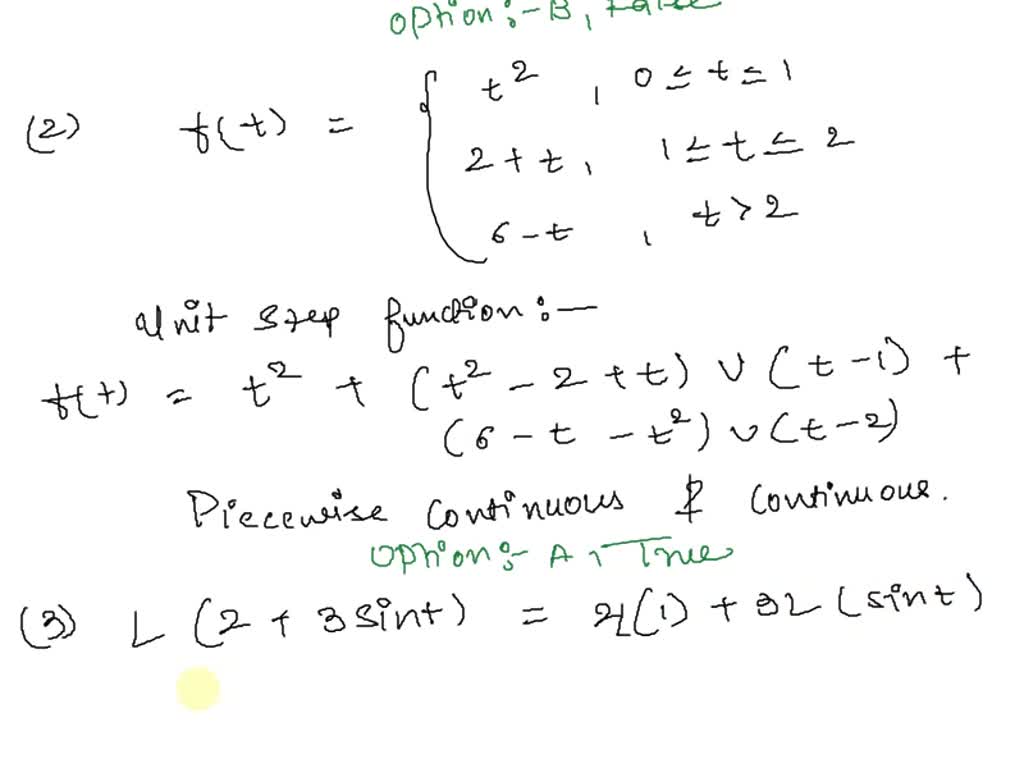 Option:- B, False
(2) f(t) = { t², 0 ≤ t ≤ 1
2 + t, 1 ≤ t ≤ 2
6 - t, t > 2
Unit step function:-
f(t) = t² + (t² - 2 + t) U (t - 1) +
(6 - t - t²) U (t - 2)
Piecewise continuous & continuous.
Option:- A, True
(3) L (2 + 3 sint) = 2L(1) + 3L (sint)